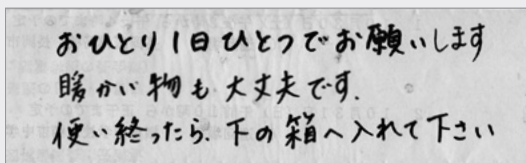 おひとり1日ひとつでお願いします
暖かい物も大丈夫です.
使い終ったら.下の箱へ入れて下さい